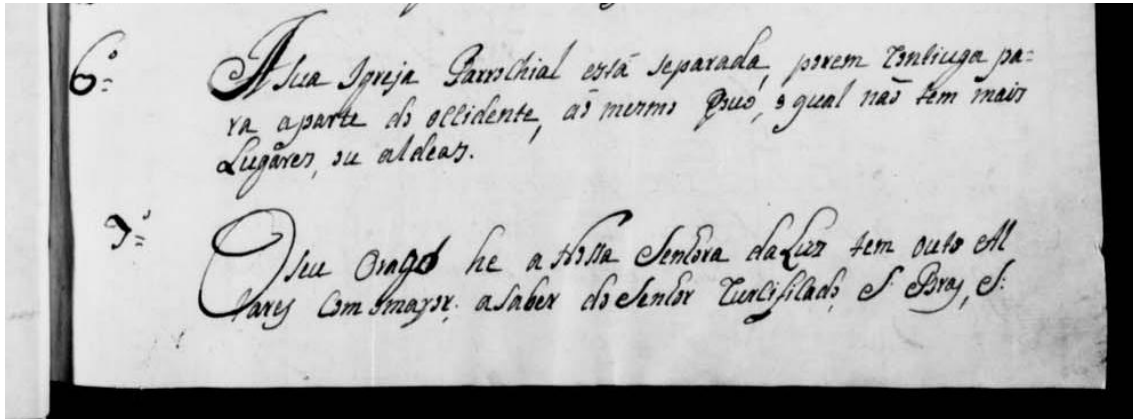 6º
A sua Igreja Parrochial está separada, porem Contiuga pa=
ra aparte do occidente, aõ mesmo Povo, o qual naõ tem mais
Lugares, ou aldeas.
7º
O seu Orago he a Nossa Senhora da Luz tem outo Al
tares Com omayor: asaber do Senhor Curcifilado, S. Bras, S.